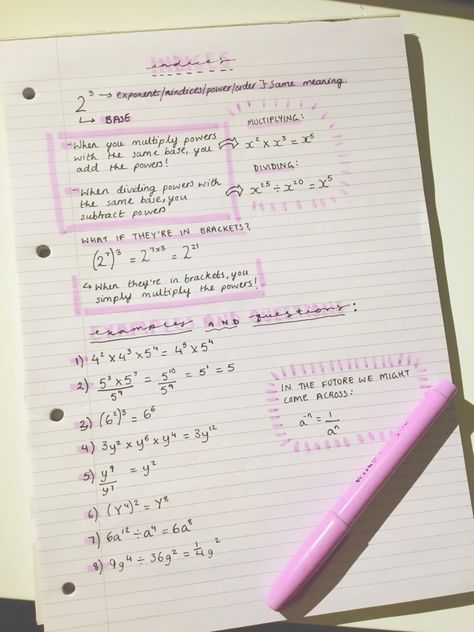 indices
2³ → exponent/indices/power/order } same meaning.
↳ BASE
MULTIPLYING:
- When you multiply powers
with the same base, you
add the powers!
x² × x³ = x⁵
DIVIDING:
- When dividing powers with
the same base, you
subtract powers
x²⁵ ÷ x²⁰ = x⁵
WHAT IF THEY'RE IN BRACKETS?
(2⁷)³ = 2⁷ˣ³ = 2²¹
↳ When they're in brackets, you
simply multiply the powers!
examples AND questions:
1) 4² × 4³ × 5⁴ = 4⁵ × 5⁴
2) 5³ × 5⁷ / 5⁹ = 5¹⁰ / 5⁹ = 5¹ = 5
3) (6²)³ = 6⁶
4) 3y² × y⁶ × y⁴ = 3y¹²
5) y⁹ / y⁷ = y²
6) (Y⁴)² = Y⁸
7) 6a¹² ÷ a⁴ = 6a⁸
8) 9g⁴ ÷ 36g² = 1/4 g²
IN THE FUTURE WE MIGHT
COME ACROSS:
a⁻ⁿ = 1 / aⁿ